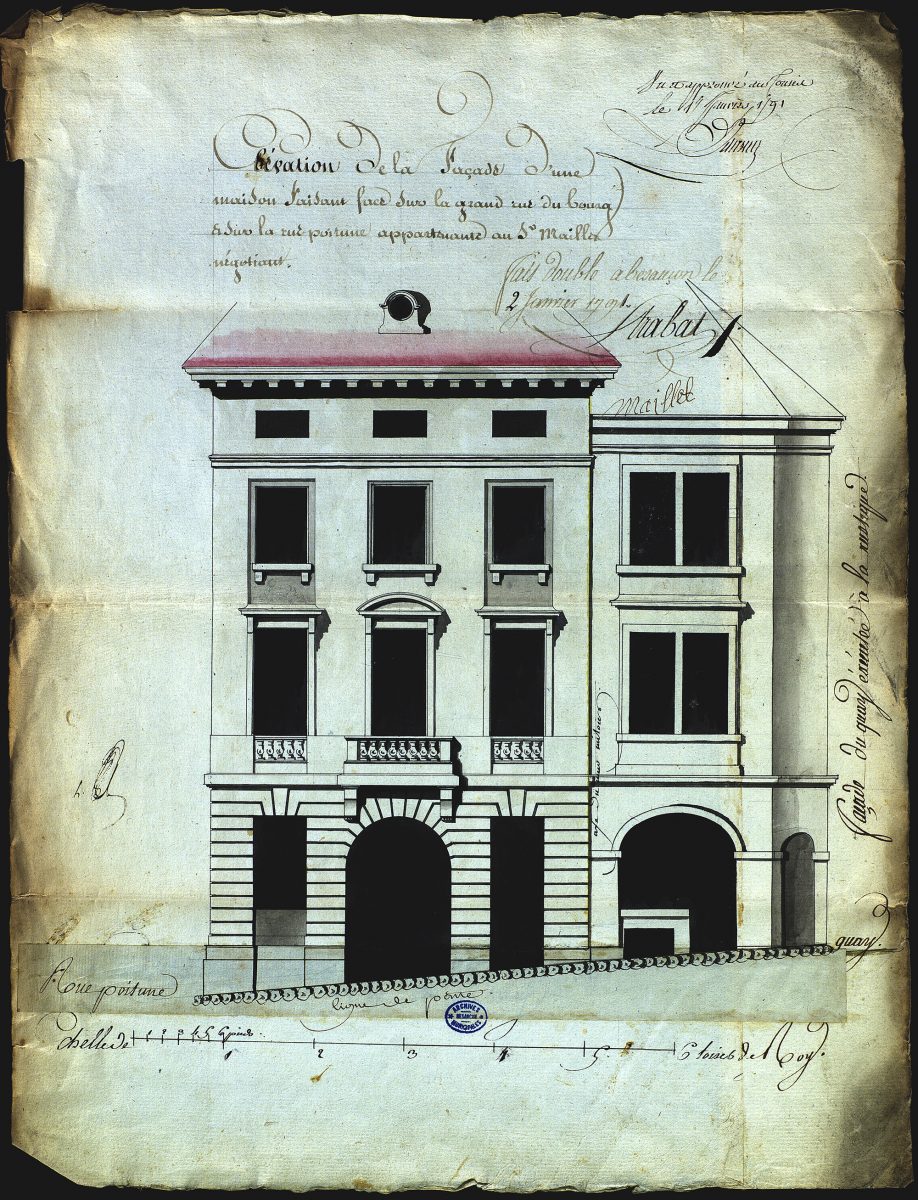 Vu et approuvé au Conseil
le Janvier 1791
Elévation De la Façade D'une
maison Faisant face Sur la grand rue du bourg
& Sur la rue poitune appartenante au Sr Maillet
négotiant.
fait double a besançon le
2 Janvier 1791.
Maillet
façade du quay éxécutée à la rustique
quay.
Rue poitune
ligne de pente.
ARCHIVES
BESANCON
MUNICIPALES
Echelle de 1 2 3 4 5 6 pieds.
1 2 3 4 5. 6 toises de Roy.